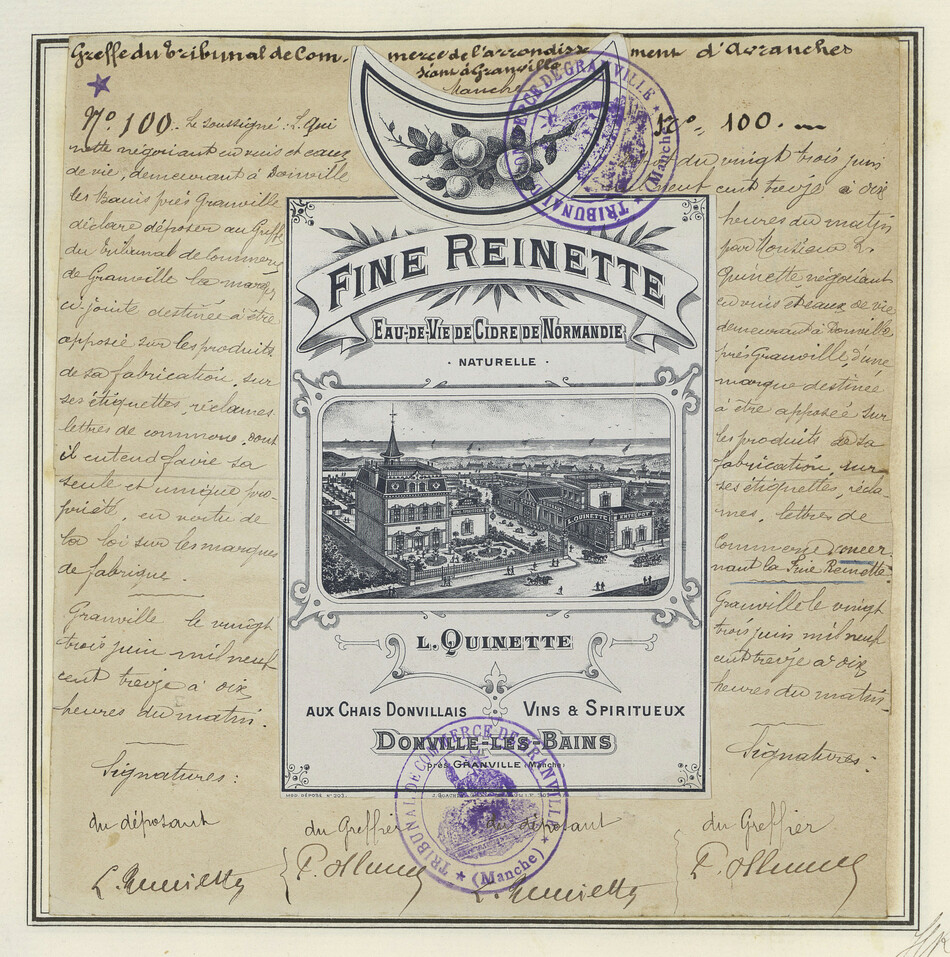 Greffe du Tribunal de Commerce de l'arrondissement d'Avranches
séant à Granville
Manche
N° 100. Le soussigné : L. Qui
nette négociant en vins et eaux
de vie, demeurant à Donville
les Bains près Granville
déclare déposer au Greffe
du Tribunal de Commerce
de Granville la marque
ci-jointe destinée à être
apposée sur les produits
de sa fabrication, sur
ses étiquettes, réclames
lettres de commerce, dont
il entend faire sa
seule et unique pro
priété en vertu de
la loi sur les marques
de fabrique.
Granville le vingt
trois juin mil neuf
cent treize à dix
heures du matin.
Signatures :
du déposant
L. Quinette
du Greffier
FINE REINETTE
EAU-DE-VIE DE CIDRE DE NORMANDIE
· NATURELLE ·
L. QUINETTE
ENTREPOT
L. QUINETTE
AUX CHAIS DONVILLAIS VINS & SPIRITUEUX
DONVILLE-LES-BAINS
près GRANVILLE (Manche)
TRIBUNAL DE COMMERCE DE GRANVILLE
(Manche)
TRIBUNAL DE COMMERCE DE GRANVILLE
(Manche)
N° 100.
du vingt trois juin
neuf cent treize à dix
heures du matin
par Monsieur L.
Quinette négociant
en vins et eaux de vie
demeurant à Donville
près Granville, d'une
marque destinée
à être apposée sur
les produits de sa
fabrication, sur
ses étiquettes, récla-
mes, lettres de
commerce concer-
nant la Fine Reinette.
Granville le vingt
trois juin mil neuf
cent treize à dix
heures du matin.
Signatures :
du déposant
L. Quinette
du Greffier